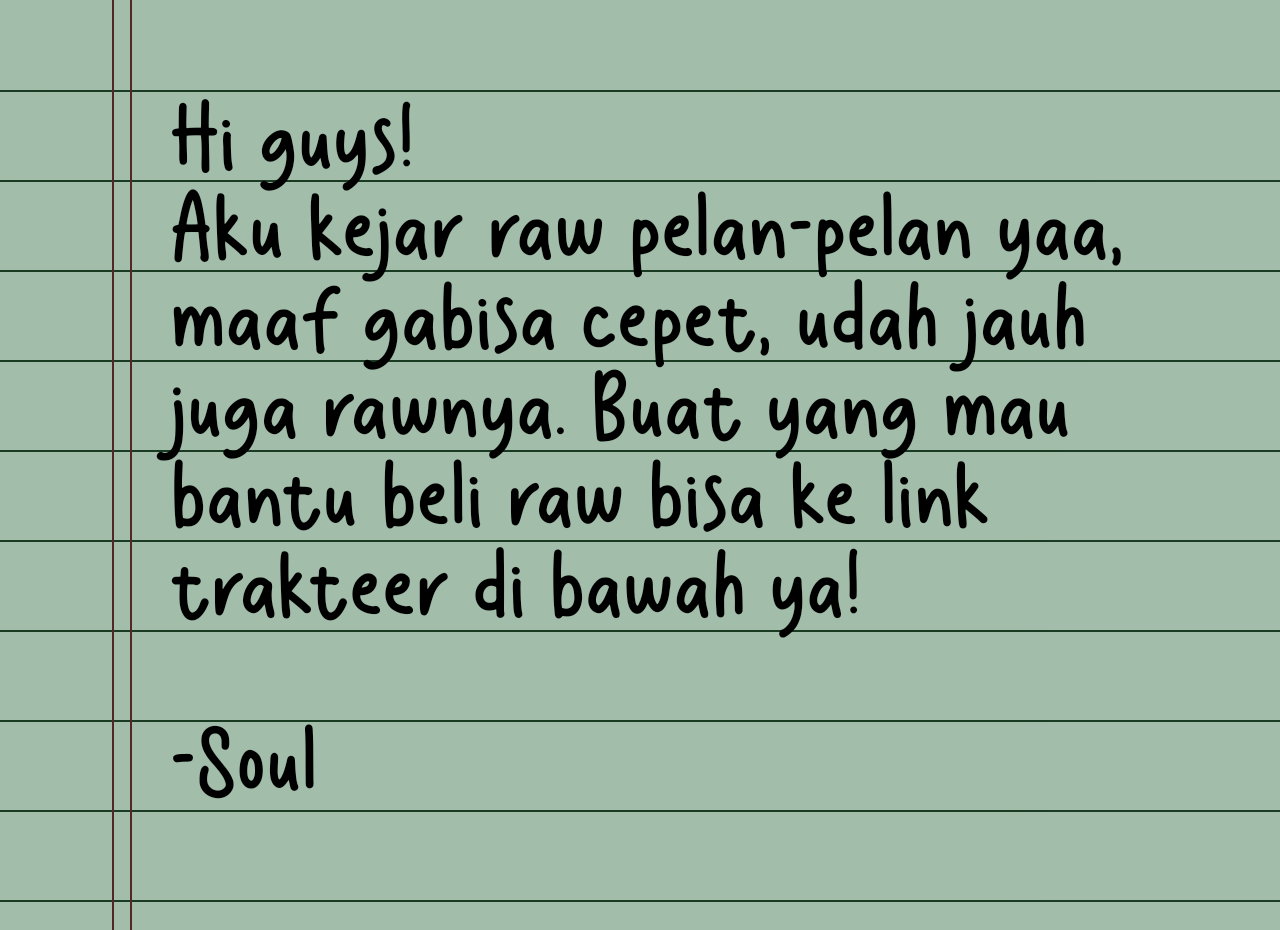 Hi guys!
Aku kejar raw pelan-pelan yaa,
maaf gabisa cepet, udah jauh
juga rawnya. Buat yang mau
bantu beli raw bisa ke link
trakteer di bawah ya!
-Soul